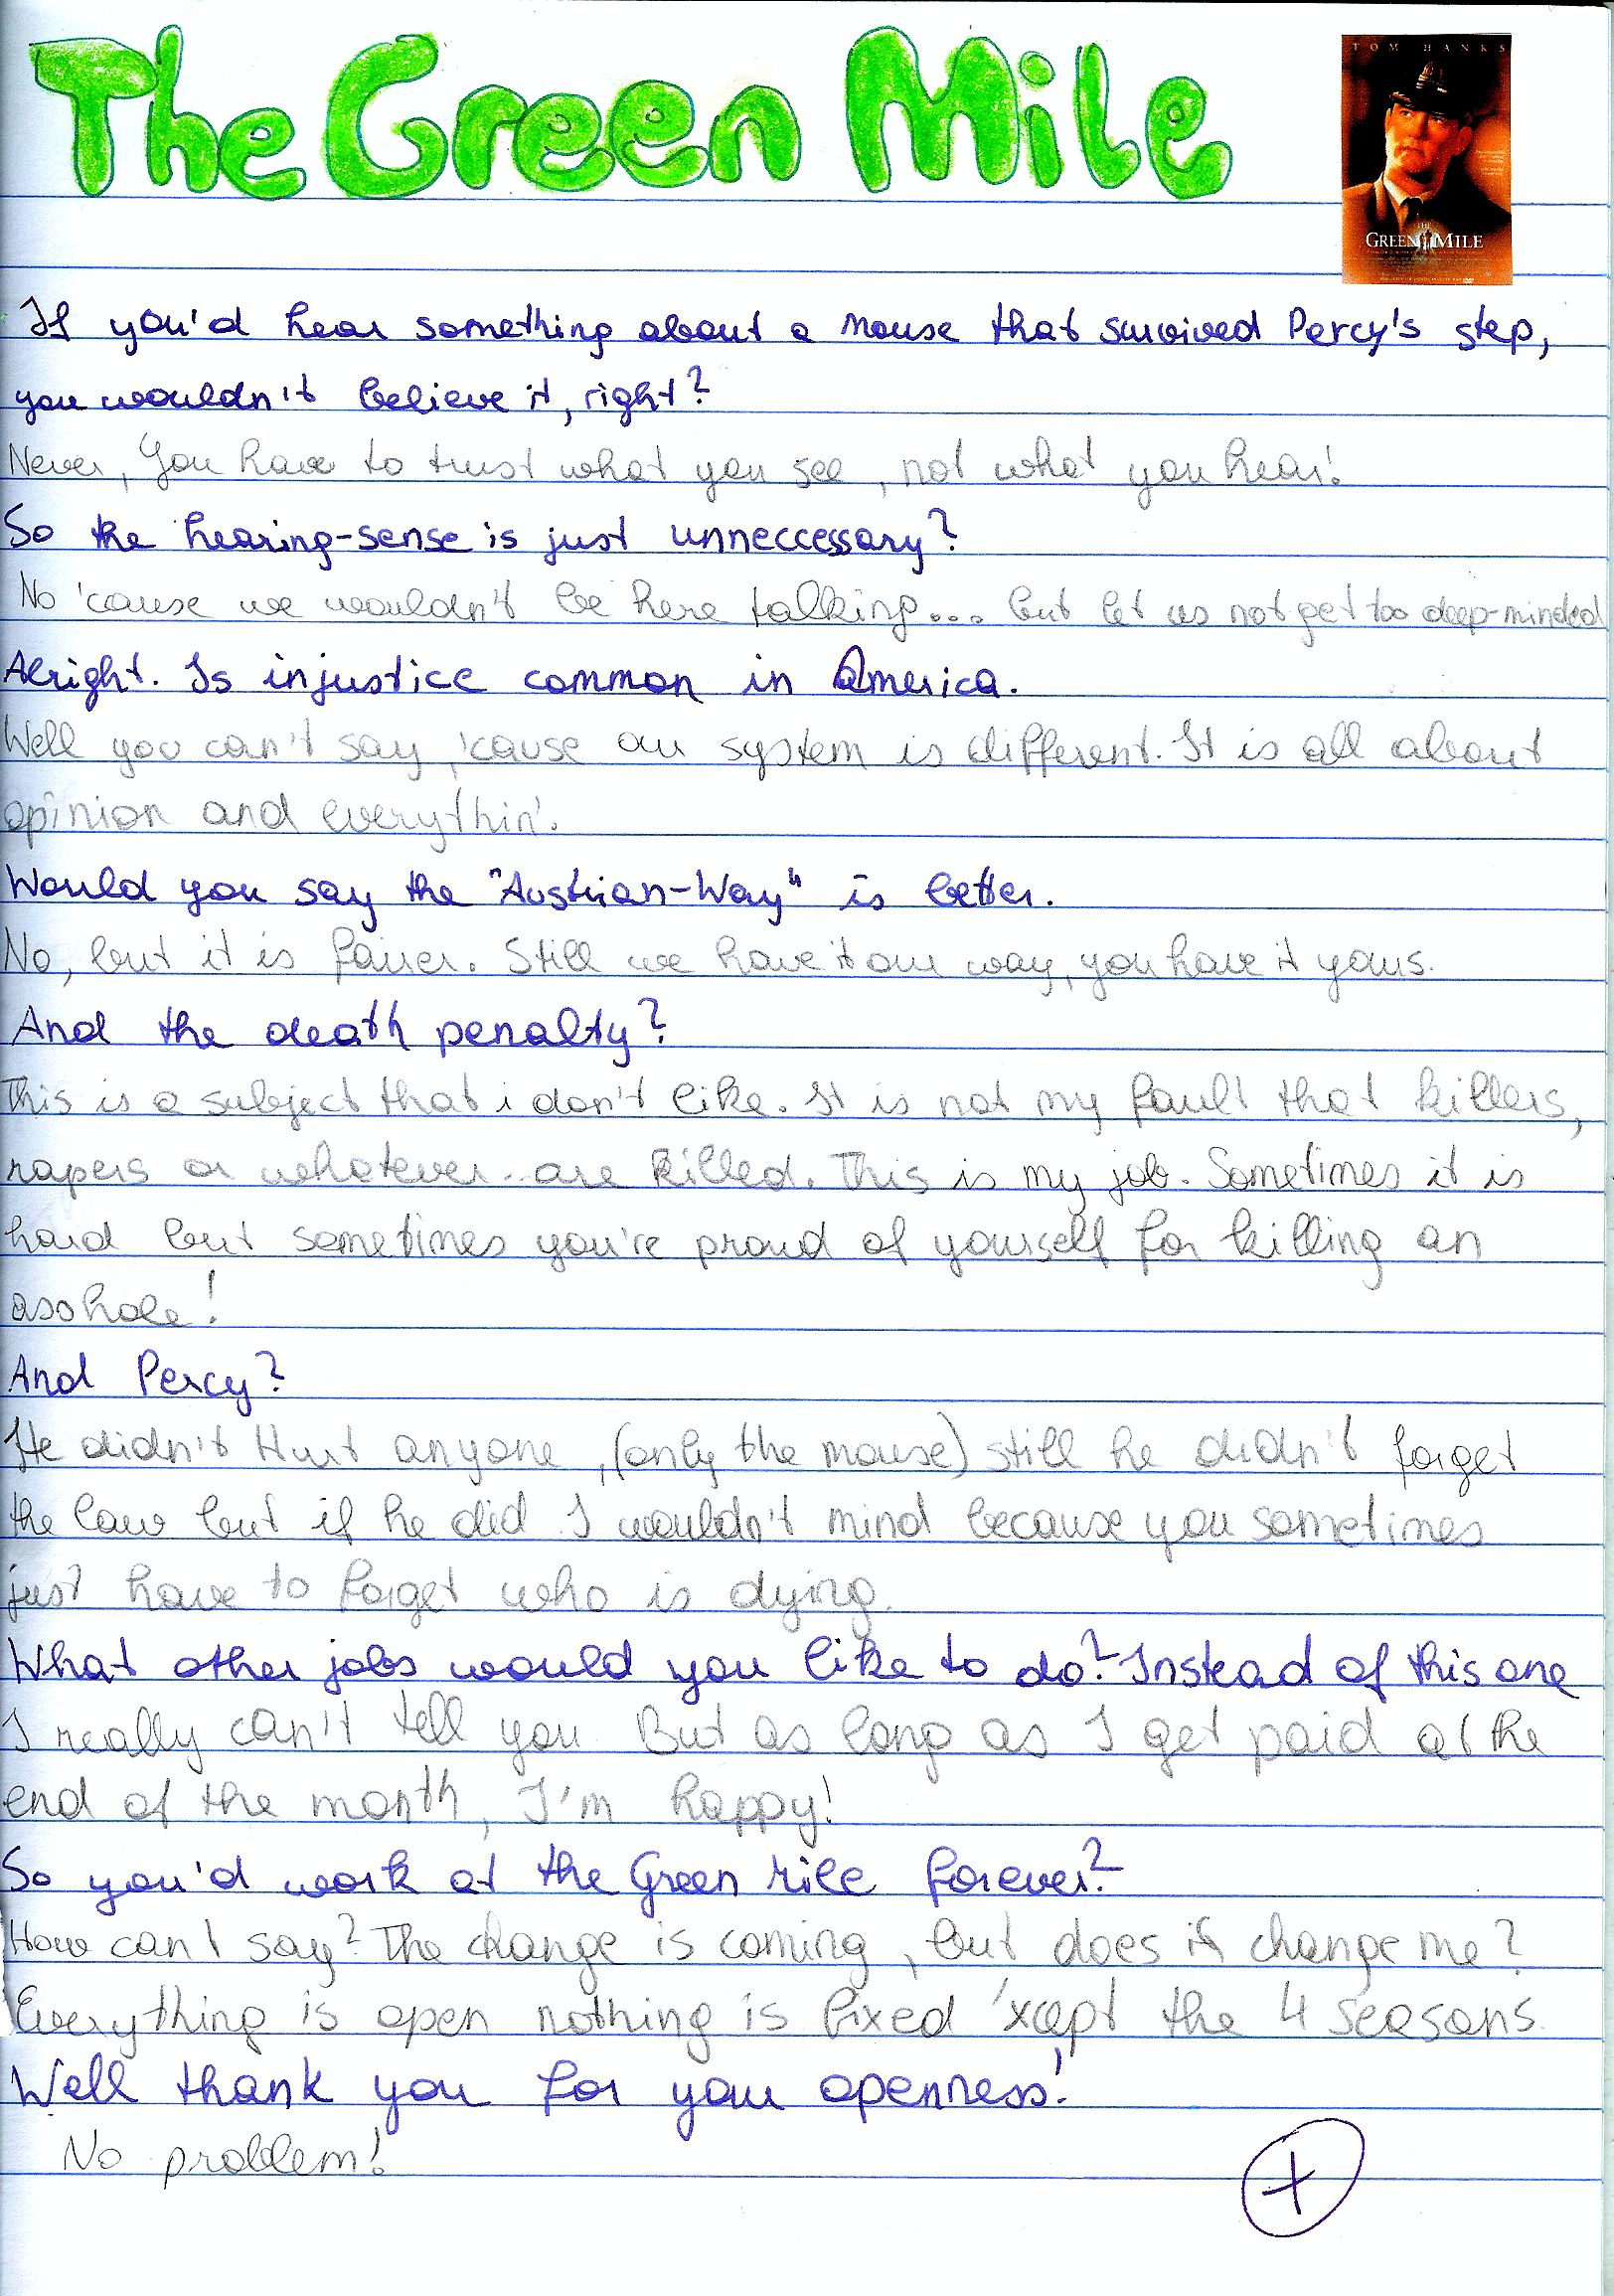 The Green Mile
TOM HANKS
THE
GREEN MILE
If you'd hear something about a mouse that survived Percy's step,
you wouldn't believe it, right?
Never, You have to trust what you see, not what you hear!
So the hearing-sense is just unneccessary?
No 'cause we wouldn't be here talking... but let us not get too deep-minded
Alright. Is injustice common in America.
Well you can't say, 'cause our system is different. It is all about
opinion and everythin'.
Would you say the "Austrian-Way" is better.
No, but it is fairer. Still we have it our way, you have it yours.
And the death penalty?
This is a subject that i don't like. It is not my fault that killers,
rapers or whatever.. are killed. This is my job. Sometimes it is
hard but sometimes you're proud of yourself for killing an
asshole!
And Percy?
He didn't Hurt anyone, (only the mouse) still he didn't forget
the law but if he did I wouldn't mind because you sometimes
just have to forget who is dying.
What other jobs would you like to do? Instead of this one
I really can't tell you But as long as I get paid at the
end of the month, I'm happy!
So you'd work at the Green Mile forever?
How can I say? The change is coming, but does it change me?
Everything is open nothing is fixed 'xcept the 4 seasons.
Well thank you for your openness!
No problem!
+